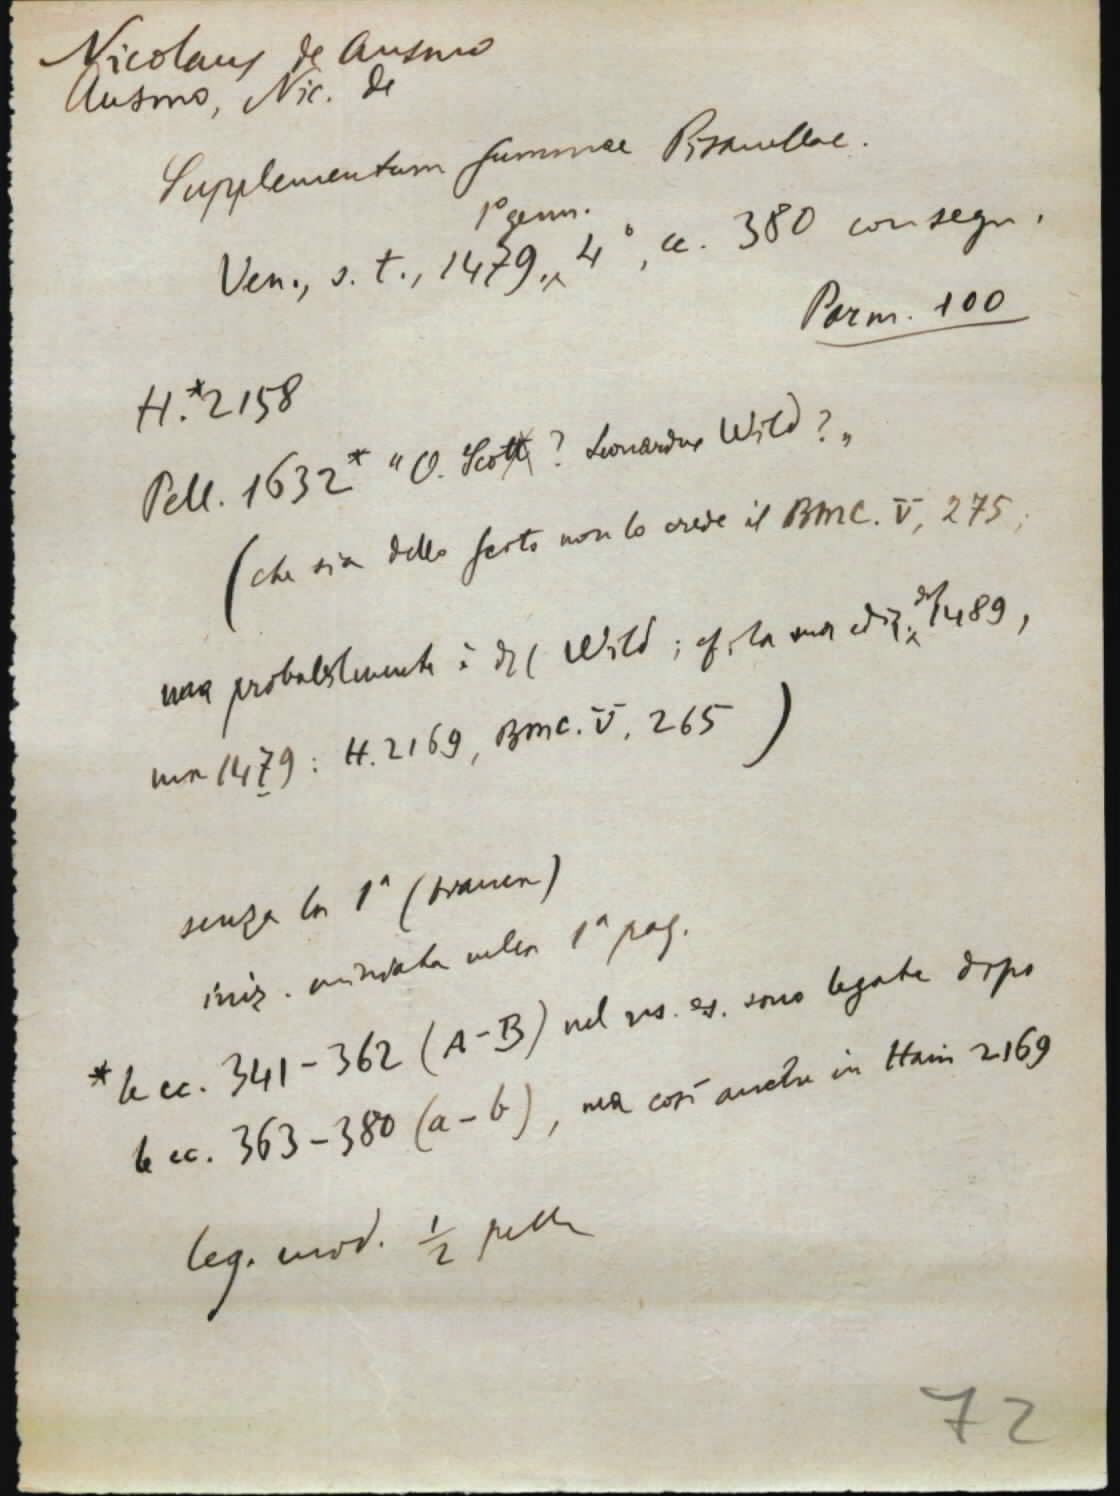 Nicolaus de Ausmo
Ausmo, Nic. de
Supplementum summae Pisanellae.
1° genn.
Ven., s. t., 1479., 4°, cc. 380 consegn.
Parm. 100
H.*2158
Pell. 1632* "O. Scott? Leonardus Wild?"
(che sia dello Scoto non lo crede il BMC. V, 275;
del
ma probabilmente è del Wild; cf. la sua ediz. 1489,
ma 1479: H. 2169, BMC. V, 265)
senza la 1ª (bianca)
iniz. miniata nella 1ª pag.
* le cc. 341-362 (A-B) nel ns. es. sono legate dopo
le cc. 363-380 (a-b), ma così anche in Hain 2169
leg. mod. ½ pelle
72